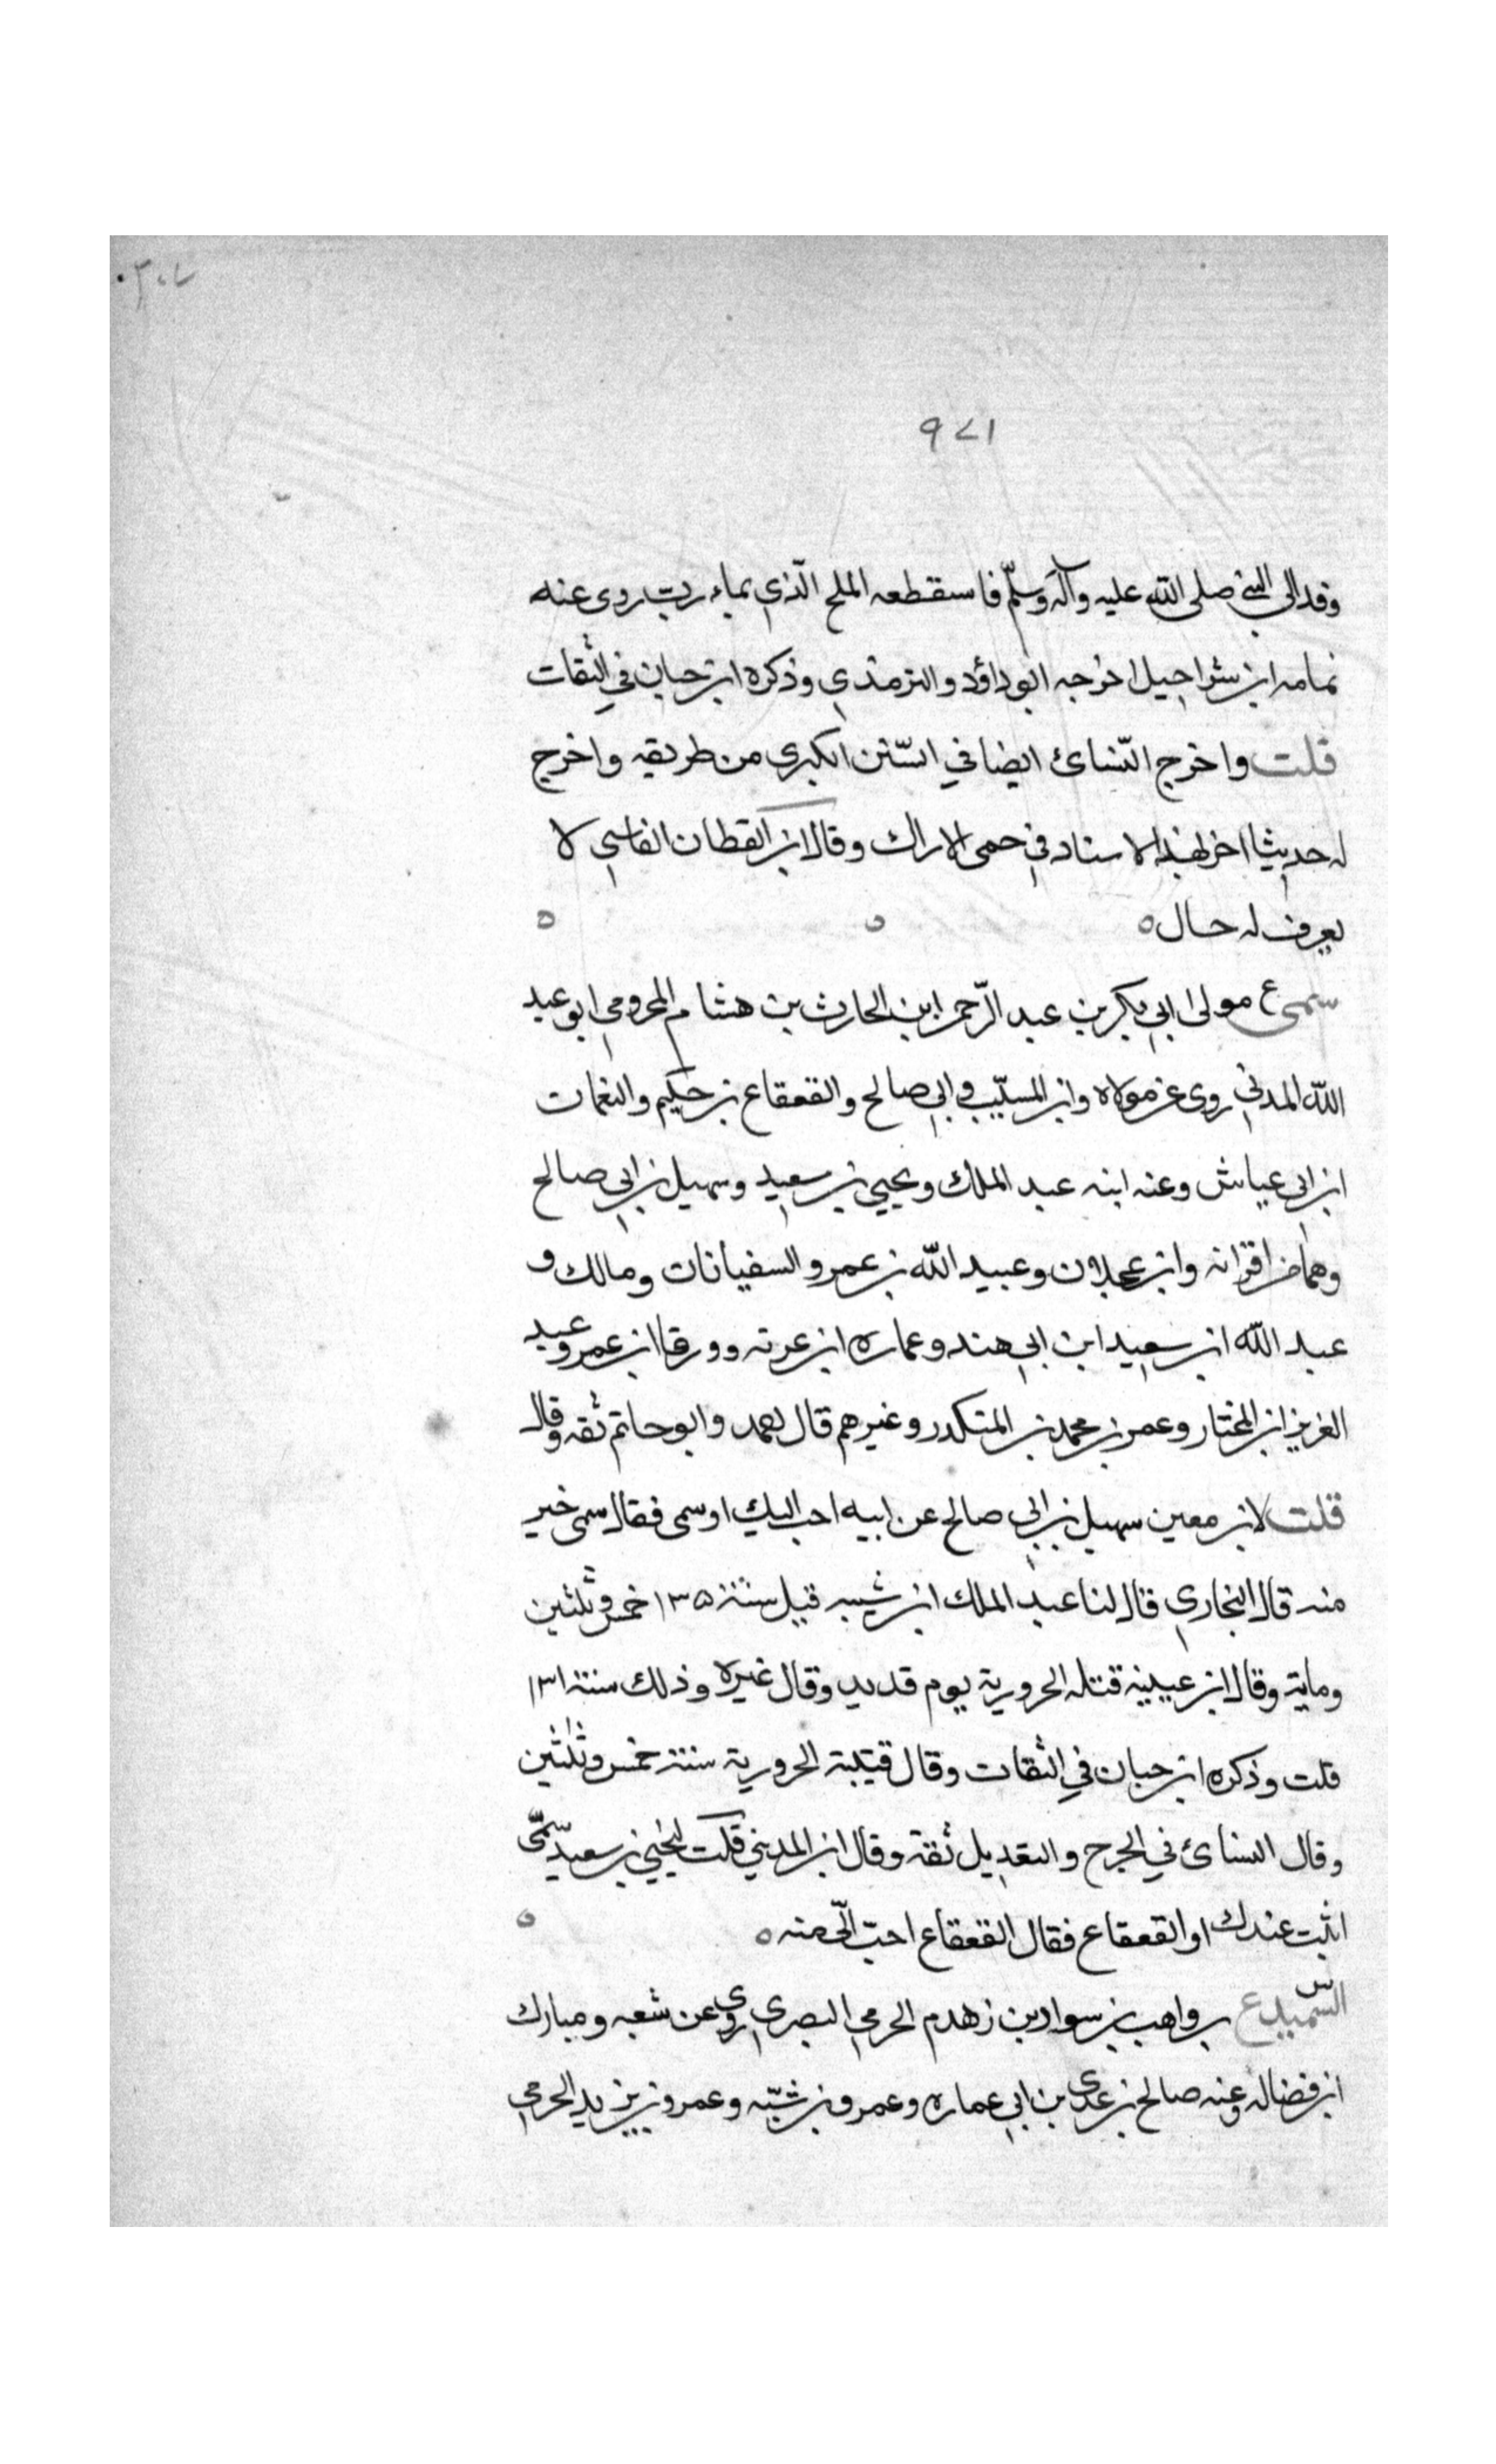 ٩٧١
وفد الى النبي صلى الله عليه وآله وسلّم فاستقطعه الملح الّذي بماء رب روى عنه
ثمامه ابن شراحيل اخرجه ابو داؤد والترمذي وذكره ابن حبان في الثقات
قلت واخرج النّسائ ايضا في السّنن الكبرى من طريقه واخرج
له حديثا اخر لهذا الاسناد في حمى الاراك وقال ابن القطان الفاسي لا
يعرف له حال ٥
سمى ع مولى ابي بكر بن عبد الرّحمن ابن الحارث بن هشام المخزومي ابو عبد
الله المدني روى عن مولاه وابن المسيّب وابي صالح والقعقاع بن حكيم والنعمان
ابن ابي عياش وعنه ابنه عبد الملك ويحيي بن سعيد وسهيل بن ابي صالح
وهما من اقرانه وابن عجلان وعبيد الله بن عمر والسفيانان ومالك و
عبد الله ابن سعيد ابن ابي هند وعماره ابن عرته وورقا ابن عمر وعبد
العزيز ابن المختار وعمر بن محمد بن المنكدر وغيرهم قال احمد وابو حاتم ثقه وقال
قلت لابن معين سهيل بن ابي صالح عن ابيه احب اليك او سمى فقال سمى خير
منه قال البخاري قال لنا عبد الملك ابن شيبه قتل سنة ١٣٥ خمس وثلثين
وماية وقال ابن عيينه قتله الحرورية يوم قديد وقال غيره وذلك سنة ١٣١
قلت وذكره ابن حبان في الثقات وقال قتلته الحرورية سنة خمس وثلثين
وقال النسائ في الجرح والتعديل ثقة وقال ابن المديني قلت ليحيي بن سعيد سمّى
اثبت عندك او القعقاع فقال القعقاع احبّ الّى منه ٥
السّميدع س بن واهب بن سوار بن زهدم الجرمي البصري روى عن شعبه ومبارك
ابن فضاله وعنه صالح بن عدى بن ابي عماره وعمرو بن شبّه وعمرو بن يزيد الجرمي